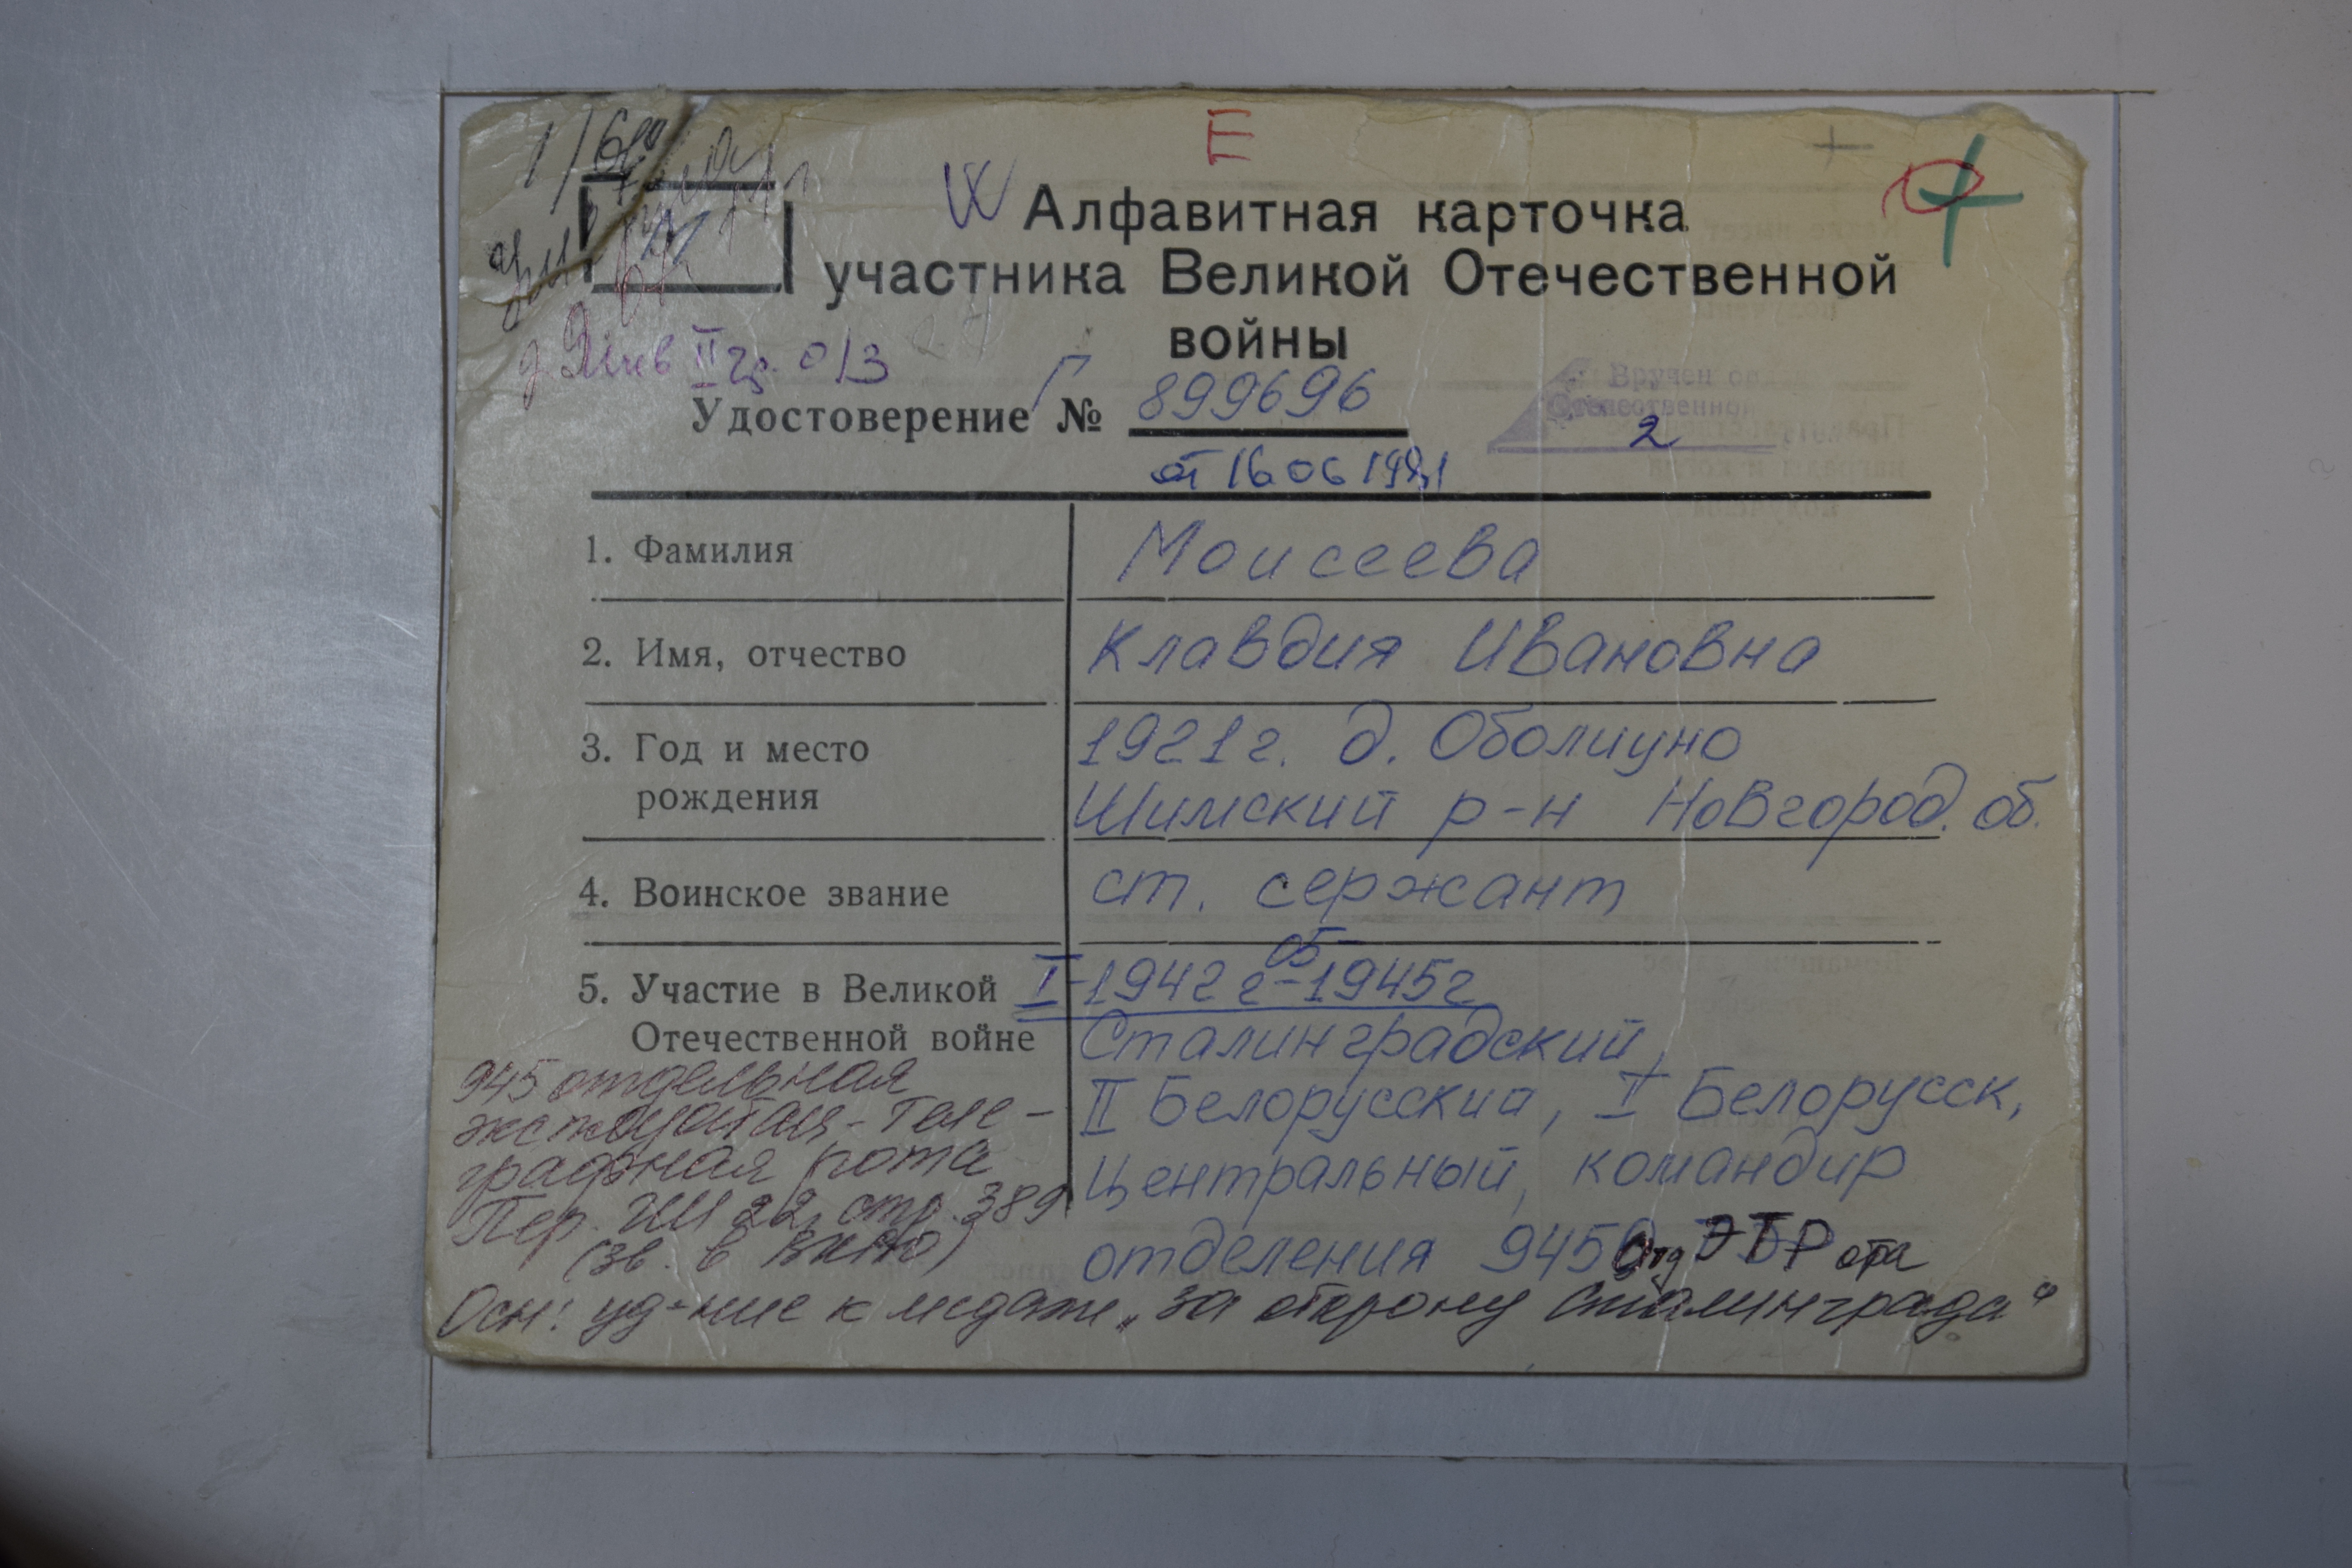 Е
Алфавитная карточка
участника Великой Отечественной
войны
д. Янв II гр. о/з
Удостоверение № Г 899696
от 16 06 1981
Вручен ор
Отечественно
2
1. Фамилия Моисеева
2. Имя, отчество Клавдия Ивановна
3. Год и место рождения 1921г. д. Оболиуно
Шимский р-н Новгород. об.
4. Воинское звание ст. сержант
5. Участие в Великой Отечественной войне I-1942 г-05 1945г
Сталинградский,
II Белорусский, I Белорусск,
Центральный, командир
отделения 945 Отд ЭТРота
945 отдельная
эксплуатац-теле-
графная рота
Пер. ГШ 22, стр. 389
(зв. в
Осн: уд-ние к медали „За оборону Сталинграда“